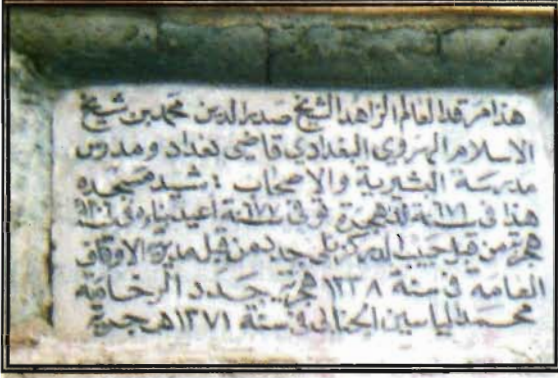 هذا مرقد العالم الزاهد الشيخ صدر الدين محمد بن شيخ
الاسلام الهروي البغدادي قاضي بغداد ومدرس
مدرسة البشيرية والاصحاب شيد مسجده
هذا في سنة هجرية توفي سنة ٦٧٧ أعيد بناءه في
هجرية من قبل حبيب جدد من قبل مديرية الاوقاف
العامة في سنة ١٣٣٨ هجرية جدد الرخامة
محمد الياسين الجنابي في سنة ١٣٧١ هجرية